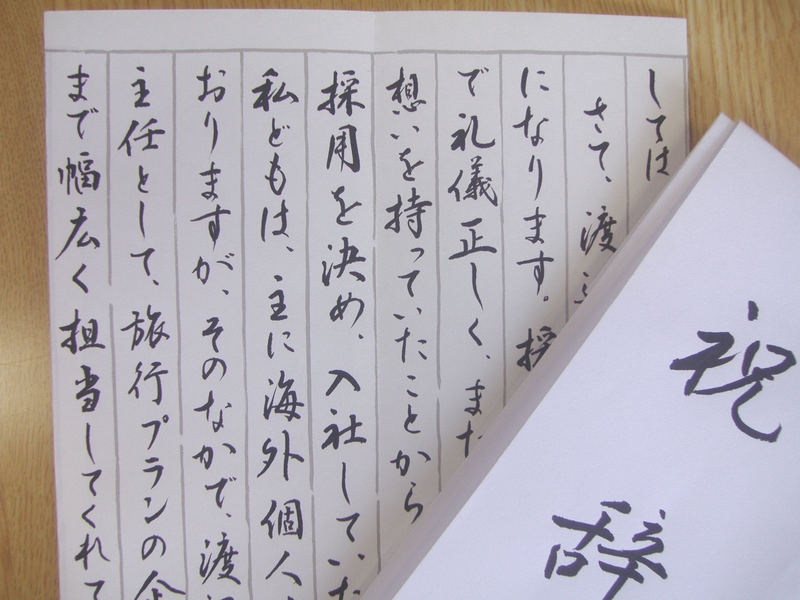 しては
さて、渡
になります。採
で礼儀正しく、また
想いを持っていたことから
採用を決め、入社していた
私どもは、主に海外個人
おりますが、そのなかで、渡
主任として、旅行プランの企
まで幅広く担当してくれて
祝辞